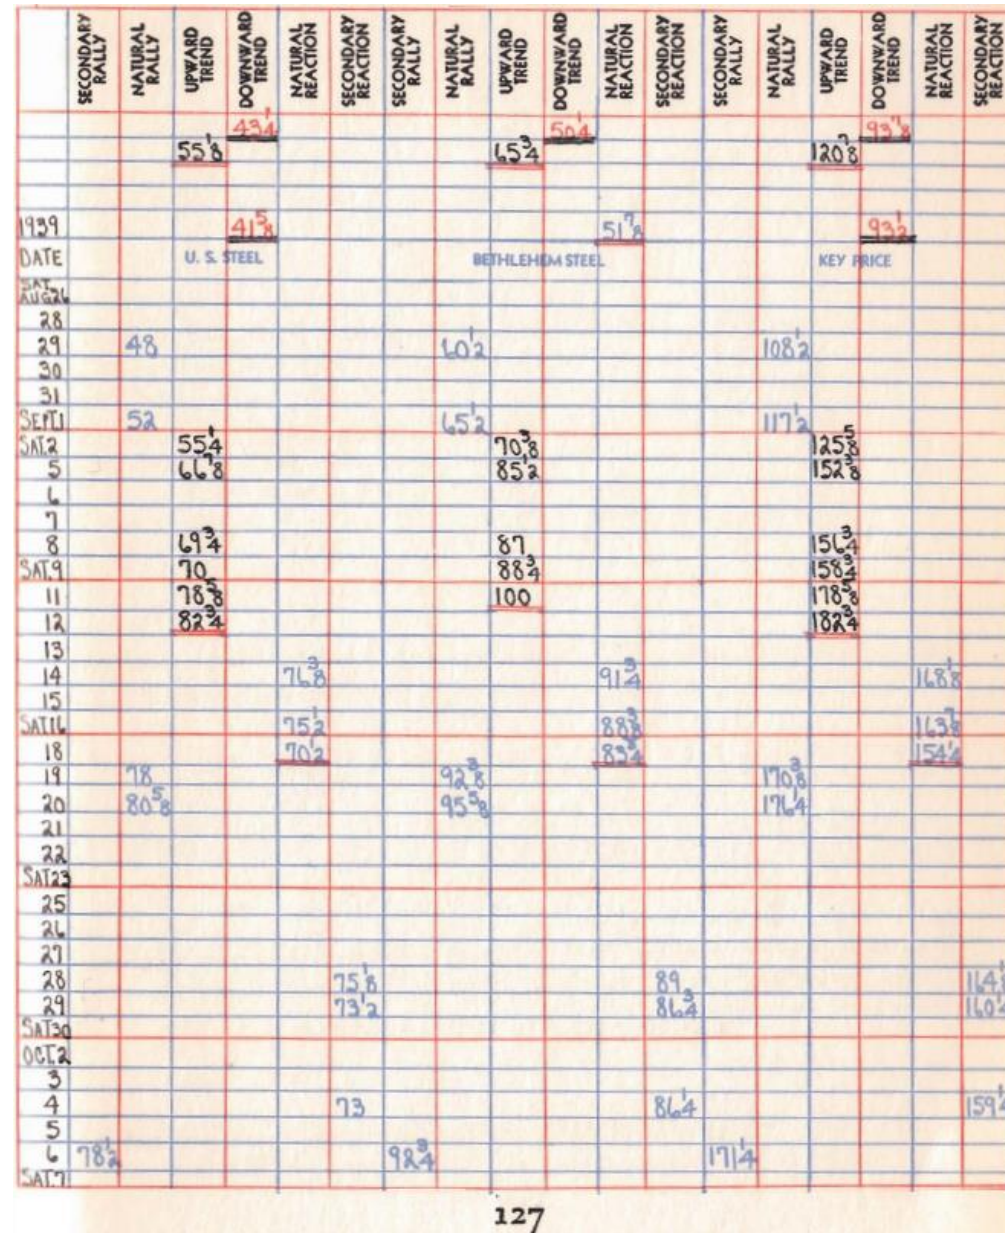 SECONDARY RALLY NATURAL RALLY UPWARD TREND DOWNWARD TREND NATURAL REACTION SECONDARY REACTION SECONDARY RALLY NATURAL RALLY UPWARD TREND DOWNWARD TREND NATURAL REACTION SECONDARY REACTION SECONDARY RALLY NATURAL RALLY UPWARD TREND DOWNWARD TREND NATURAL REACTION SECONDARY REACTION
43 1/4 50 1/4 93 7/8
55 1/8 65 3/4 120 7/8
1939 41 5/8 51 7/8 93 1/2
DATE U. S. STEEL BETHLEHEM STEEL KEY PRICE
SAT. AUG 26
28
29 48 60 1/2 108 1/2
30
31
SEPT.1 52 65 1/2 117 1/2
SAT.2 55 1/4 70 3/8 125 5/8
5 66 7/8 85 1/2 152 3/8
6
7
8 69 3/4 87 156 3/4
SAT.9 70 88 3/4 158 3/4
11 78 5/8 100 178 5/8
12 82 3/4 182 3/4
13
14 76 3/8 91 3/4 168 1/8
15
SAT 16 75 1/2 88 3/8 163 7/8
18 70 1/2 83 3/4 154 1/4
19 78 92 3/8 170 3/8
20 80 5/8 95 5/8 176 1/4
21
22
SAT 23
25
26
27
28 75 1/8 89
29 73 1/2 86 3/4
SAT 30
OCT.2
3
4 73 86 1/4
5
6 78 1/2 92 3/4 171 1/4
SAT.7
127